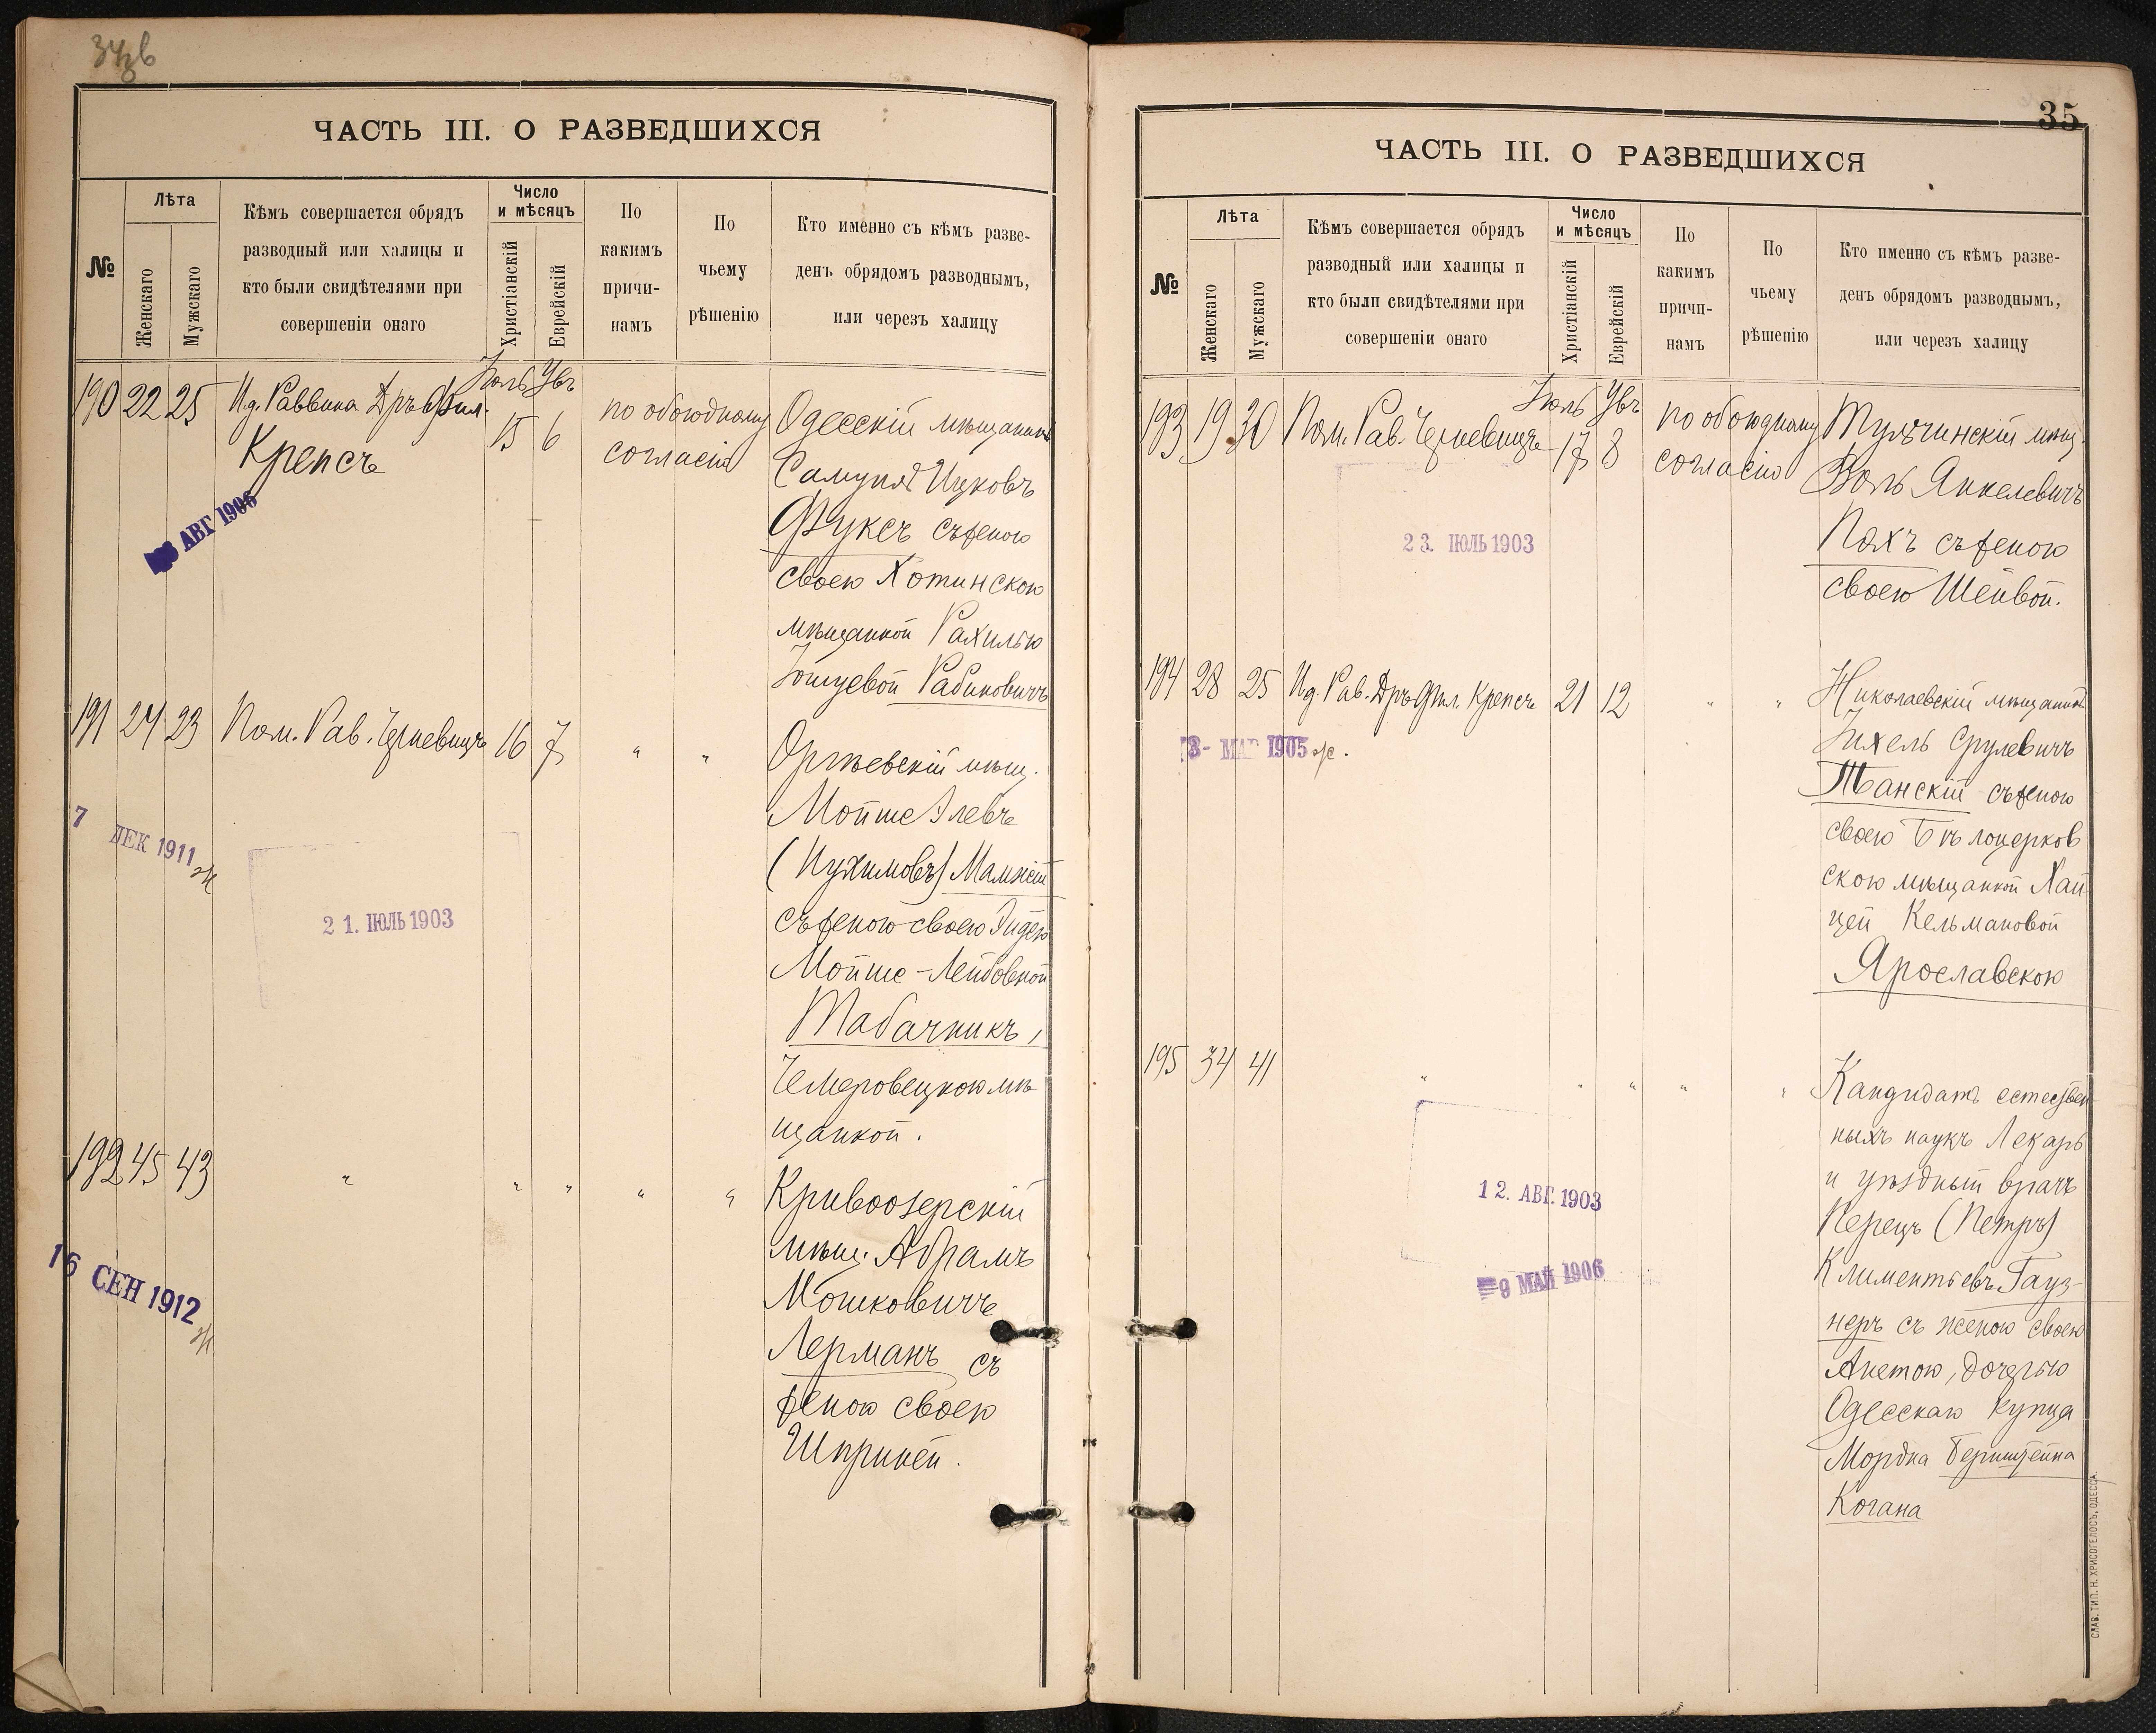 ЧАСТЬ III. О РАЗВЕДШИХСЯ
№
Лѣта
Женскаго
Мужскаго
Кѣмъ совершается обрядъ
разводный или халицы и
кто были свидѣтелями при
совершеніи онаго
Число
и мѣсяцъ
Христіанскій
Еврейскій
По
какимъ
причи-
намъ
По
чьему
рѣшенію
Кто именно съ кѣмъ разве-
денъ обрядомъ разводнымъ,
или черезъ халицу
190 22 25 И.д. Раввина Дръ Фил.
Крепсъ
Іюль 15
6
по обоюдному
согласію
Одесскій мѣщанинъ
Самуилъ Ицковъ
Фуксъ съ женою
своею Хотинскою
мѣщанкой Рахилью
Рабиновичъ
АВГ 1906
191 24 23 Пом. Рав. 16 7 " "
Оргѣевскій мѣщ.
Мойше
съ женою своею
Мойше-Лейбовной
Табачникъ,
Чемеровецкою мѣ
щанкой.
7 ДЕК 1911
21. ІЮЛЬ 1903
192 45 43 " " " " "
Кривоозерскій
мѣщ. Абрамъ
Мошковичъ
Лерманъ съ
женою своею
Шпринцей.
16 СЕН 1912
35
ЧАСТЬ III. О РАЗВЕДШИХСЯ
№
Лѣта
Женскаго
Мужскаго
Кѣмъ совершается обрядъ
разводный или халицы и
кто были свидѣтелями при
совершеніи онаго
Число
и мѣсяцъ
Христіанскій
Еврейскій
По
какимъ
причи-
намъ
По
чьему
рѣшенію
Кто именно съ кѣмъ разве-
денъ обрядомъ разводнымъ,
или черезъ халицу
193 19 30 Пом. Рав.
Іюль 17
8
по обоюдному
согласію
Тульчинскій мѣщ.
Янкелевичъ
съ женою
своею Шейвой.
23. ІЮЛЬ 1903
194 28 25 И.д. Рав. Дръ Фил. Крепсъ 21 12 " "
Николаевскій мѣщанинъ
Ихель Срулевичъ
съ женою
своею Бѣлоцерков
скою мѣщанкой Хай
цей Кельмановой
Ярославскою
МАР 1905
195 34 41 " " " " "
Кандидатъ естествен
ныхъ наукъ Лекарь
и уѣздный врачъ
Перецъ (Петръ)
Климентьевъ Гауз-
неръ съ женою своею
Анетою, дочерью
Одесскаго купца
Мордка Бернштейна
Когана
12. АВГ. 1903
9 МАЙ 1906
СЛАВ. ТИП. Н. ХРИСОГЕЛОСЪ, ОДЕССА.